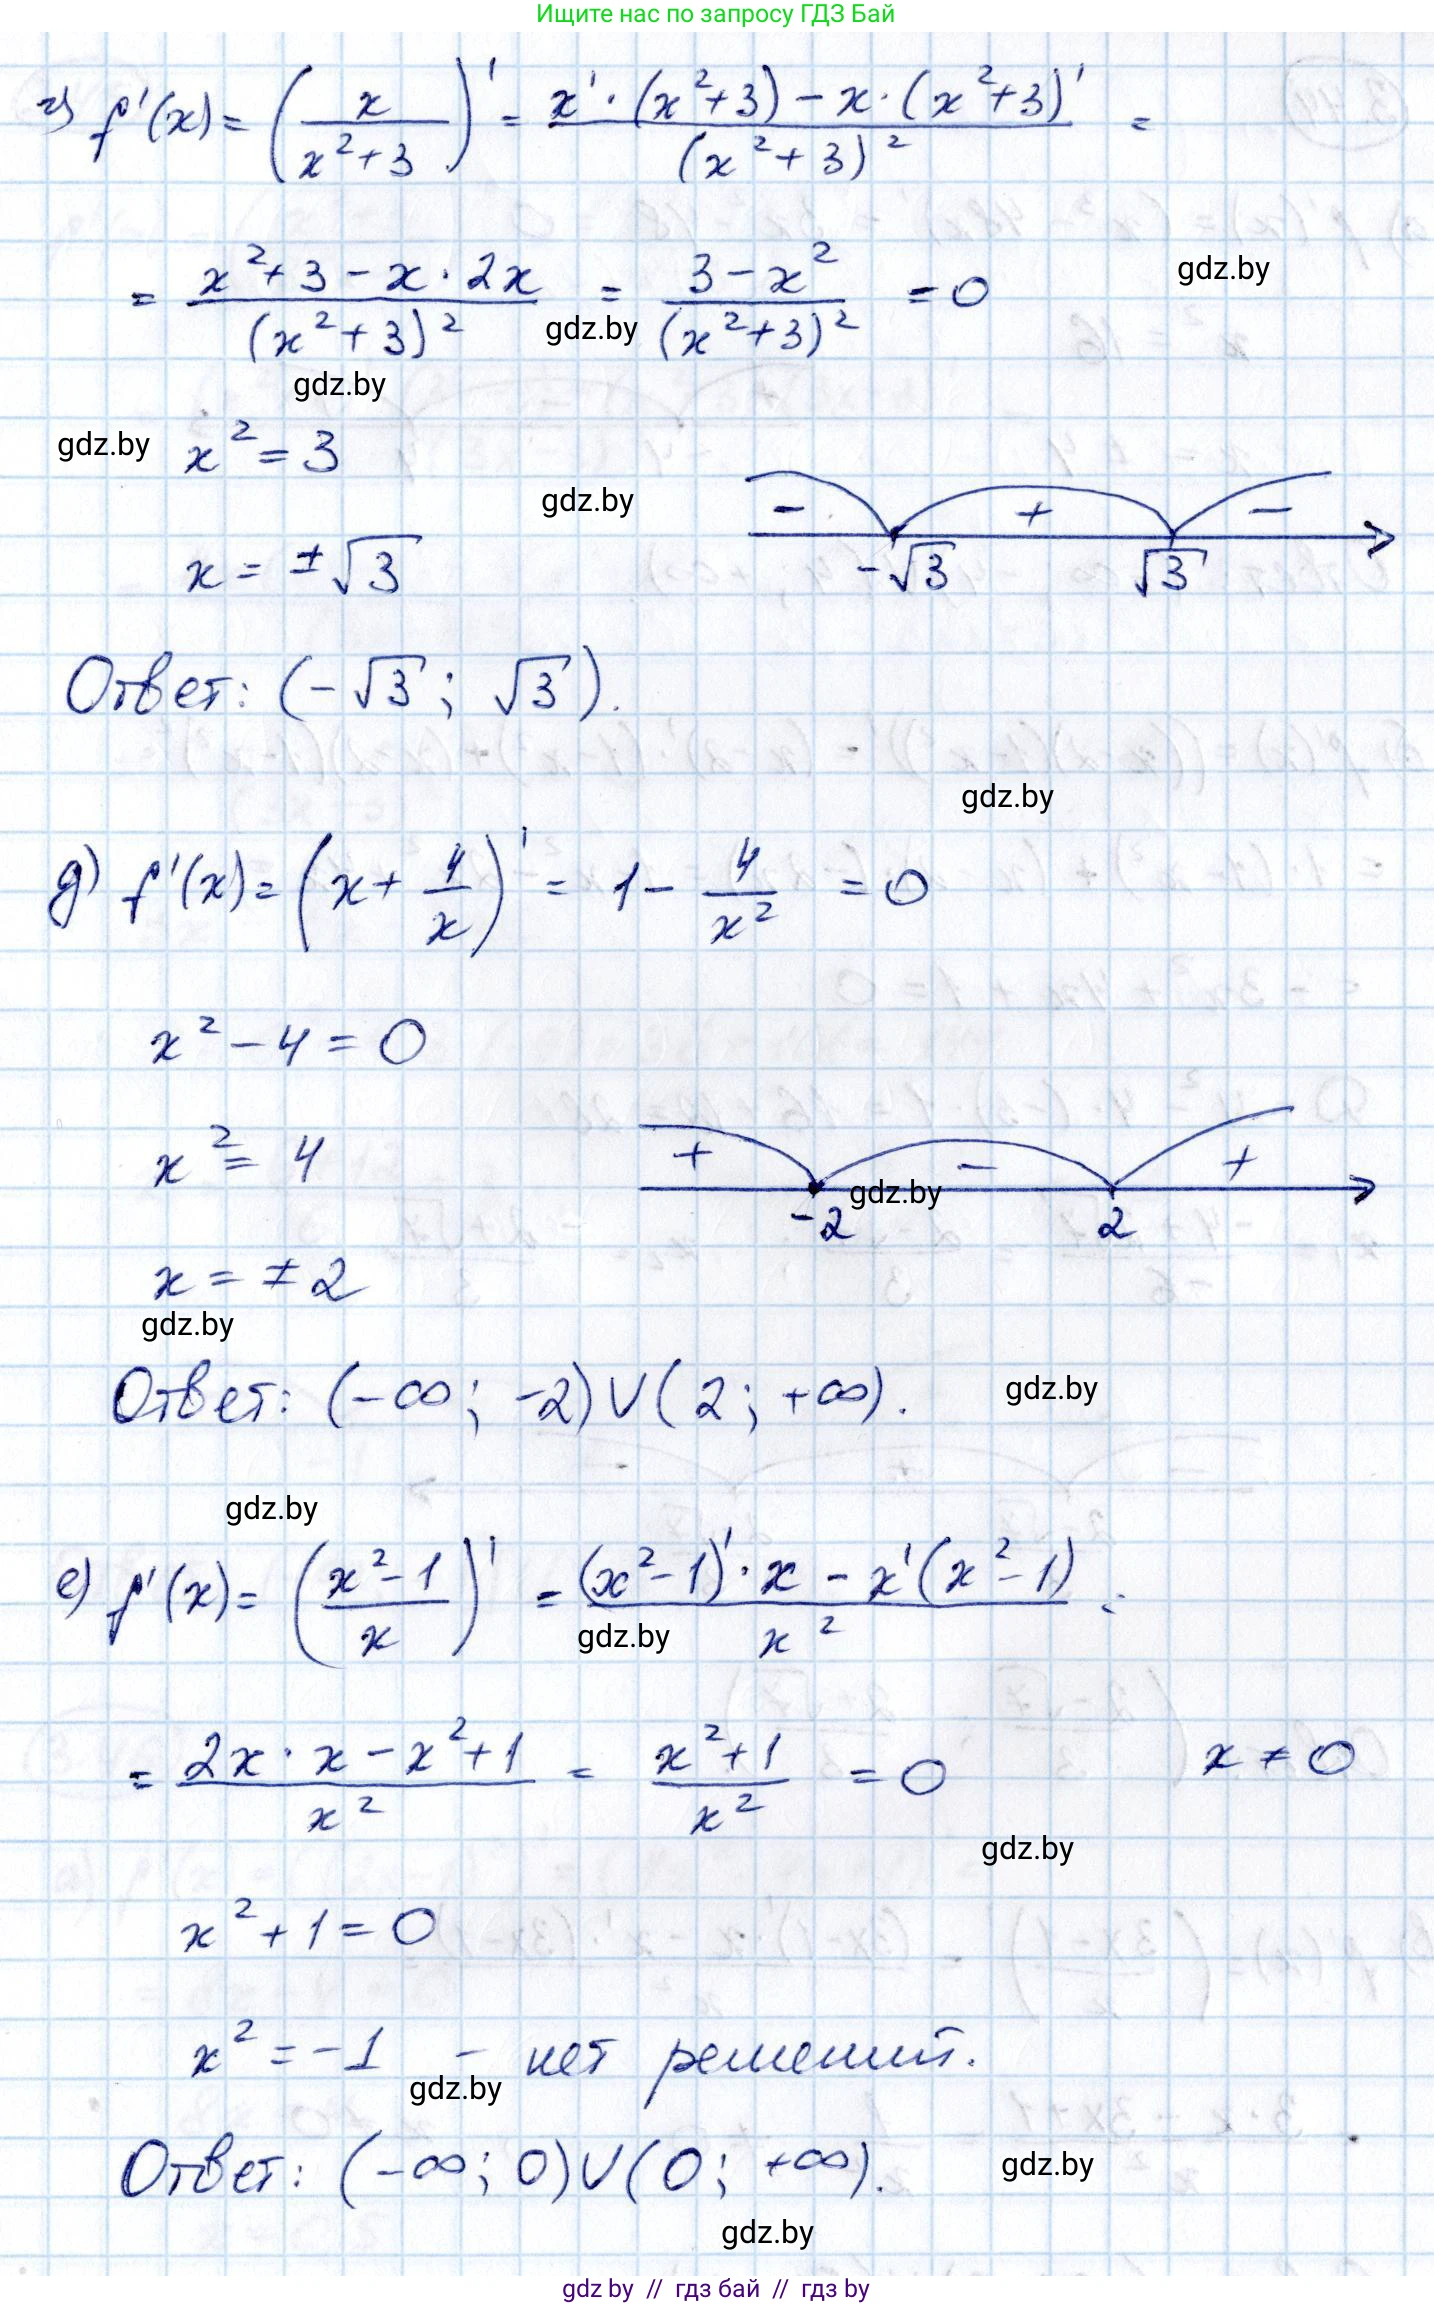 Ищите нас по запросу ГДЗ Бай
г) f'(x) = (x/(x²+3))' = (x'·(x²+3) − x·(x²+3)')/(x²+3)² =
= (x²+3−x·2x)/(x²+3)² = (3−x²)/(x²+3)² = 0
gdz.by
gdz.by
gdz.by
x² = 3
gdz.by
gdz.by
− + −
−√3 √3
x = ±√3
Ответ: (−√3; √3).
gdz.by
д) f'(x) = (x + 4/x)' = 1 − 4/x² = 0
x² − 4 = 0
x² = 4
+ − +
gdz.by
−2 2
x = ±2
gdz.by
Ответ: (−∞; −2)∪(2; +∞).
gdz.by
gdz.by
е) f'(x) = ((x²−1)/x)' = ((x²−1)'·x − x'(x²−1))/x² =
gdz.by
= (2x·x−x²+1)/x² = (x²+1)/x² = 0 x ≠ 0
gdz.by
x² + 1 = 0
x² = −1 − нет решений.
gdz.by
Ответ: (−∞; 0)∪(0; +∞).
gdz.by
gdz.by
gdz by // гдз бай // гдз by